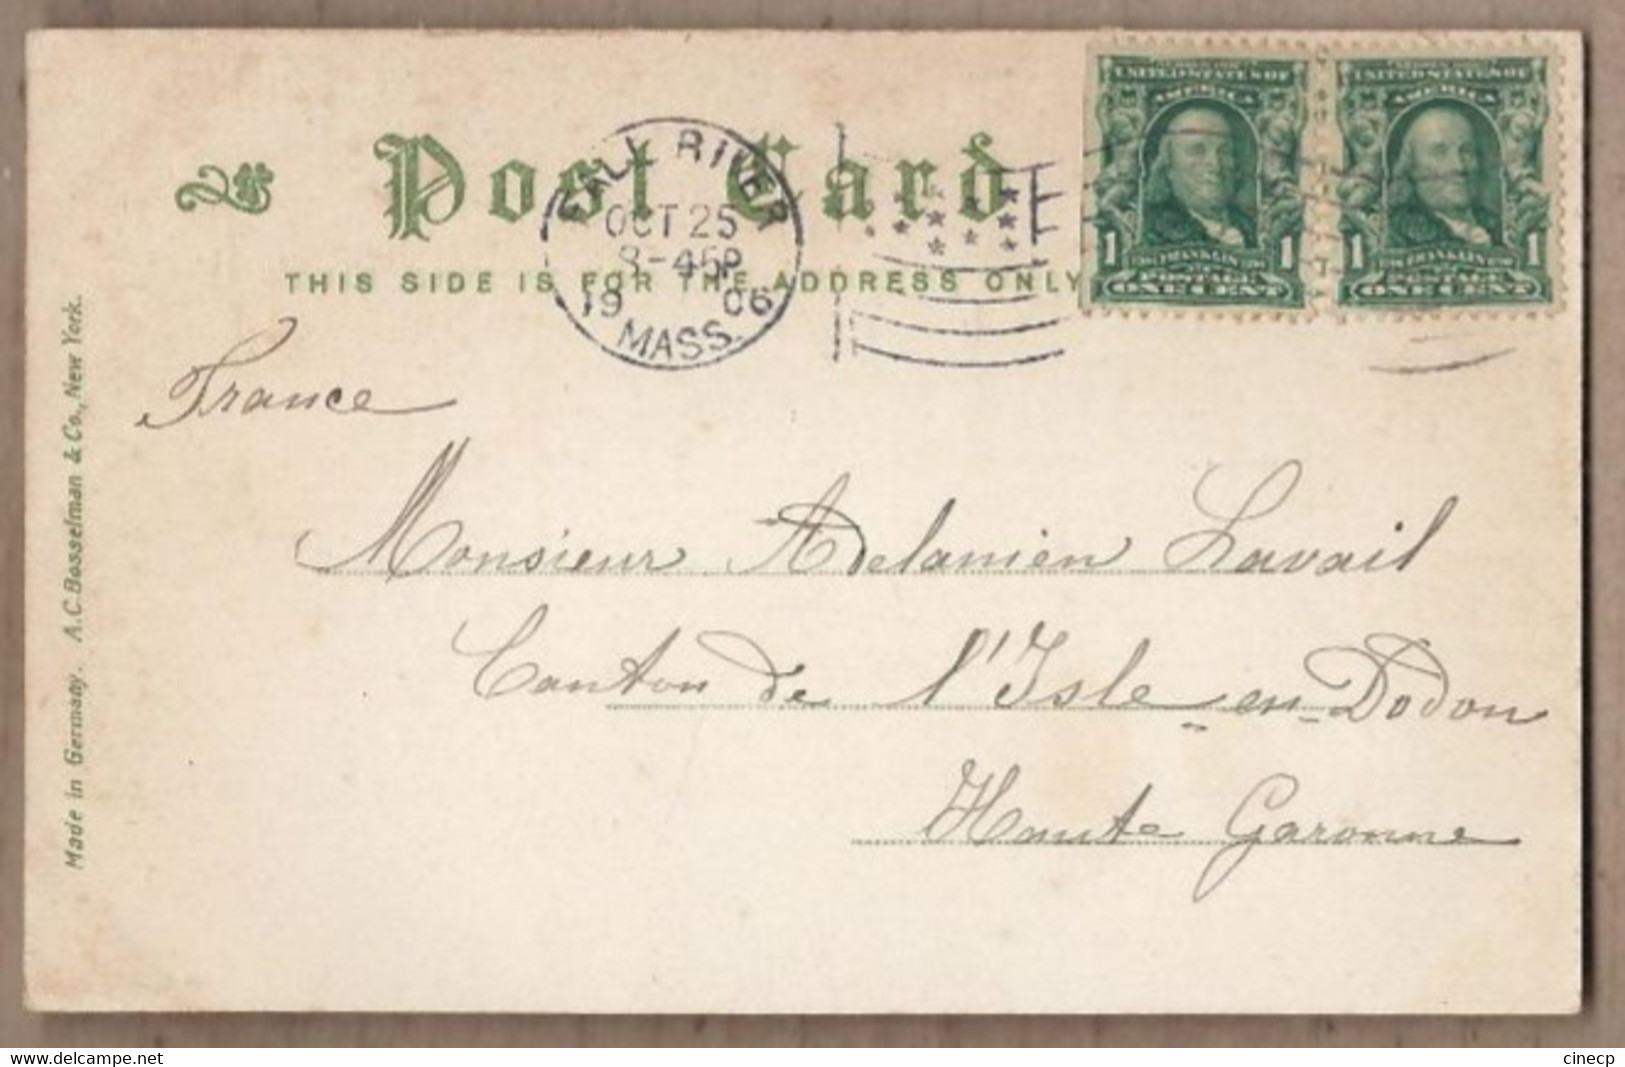 Post Card
THIS SIDE IS FOR THE ADDRESS ONLY
FALL RIVER
OCT 25
8-45P
1906
MASS.
UNITED STATES OF
AMERICA
1 FRANKLIN 1
POSTAGE
ONE CENT
UNITED STATES OF
AMERICA
1 FRANKLIN 1
POSTAGE
ONE CENT
France
Monsieur Adelamien Lavail
Canton de l'Isle-en-Dodon
Haute Garonne
Made in Germany. A.C. Bosselman & Co., New York.
www.delcampe.net
cinecp